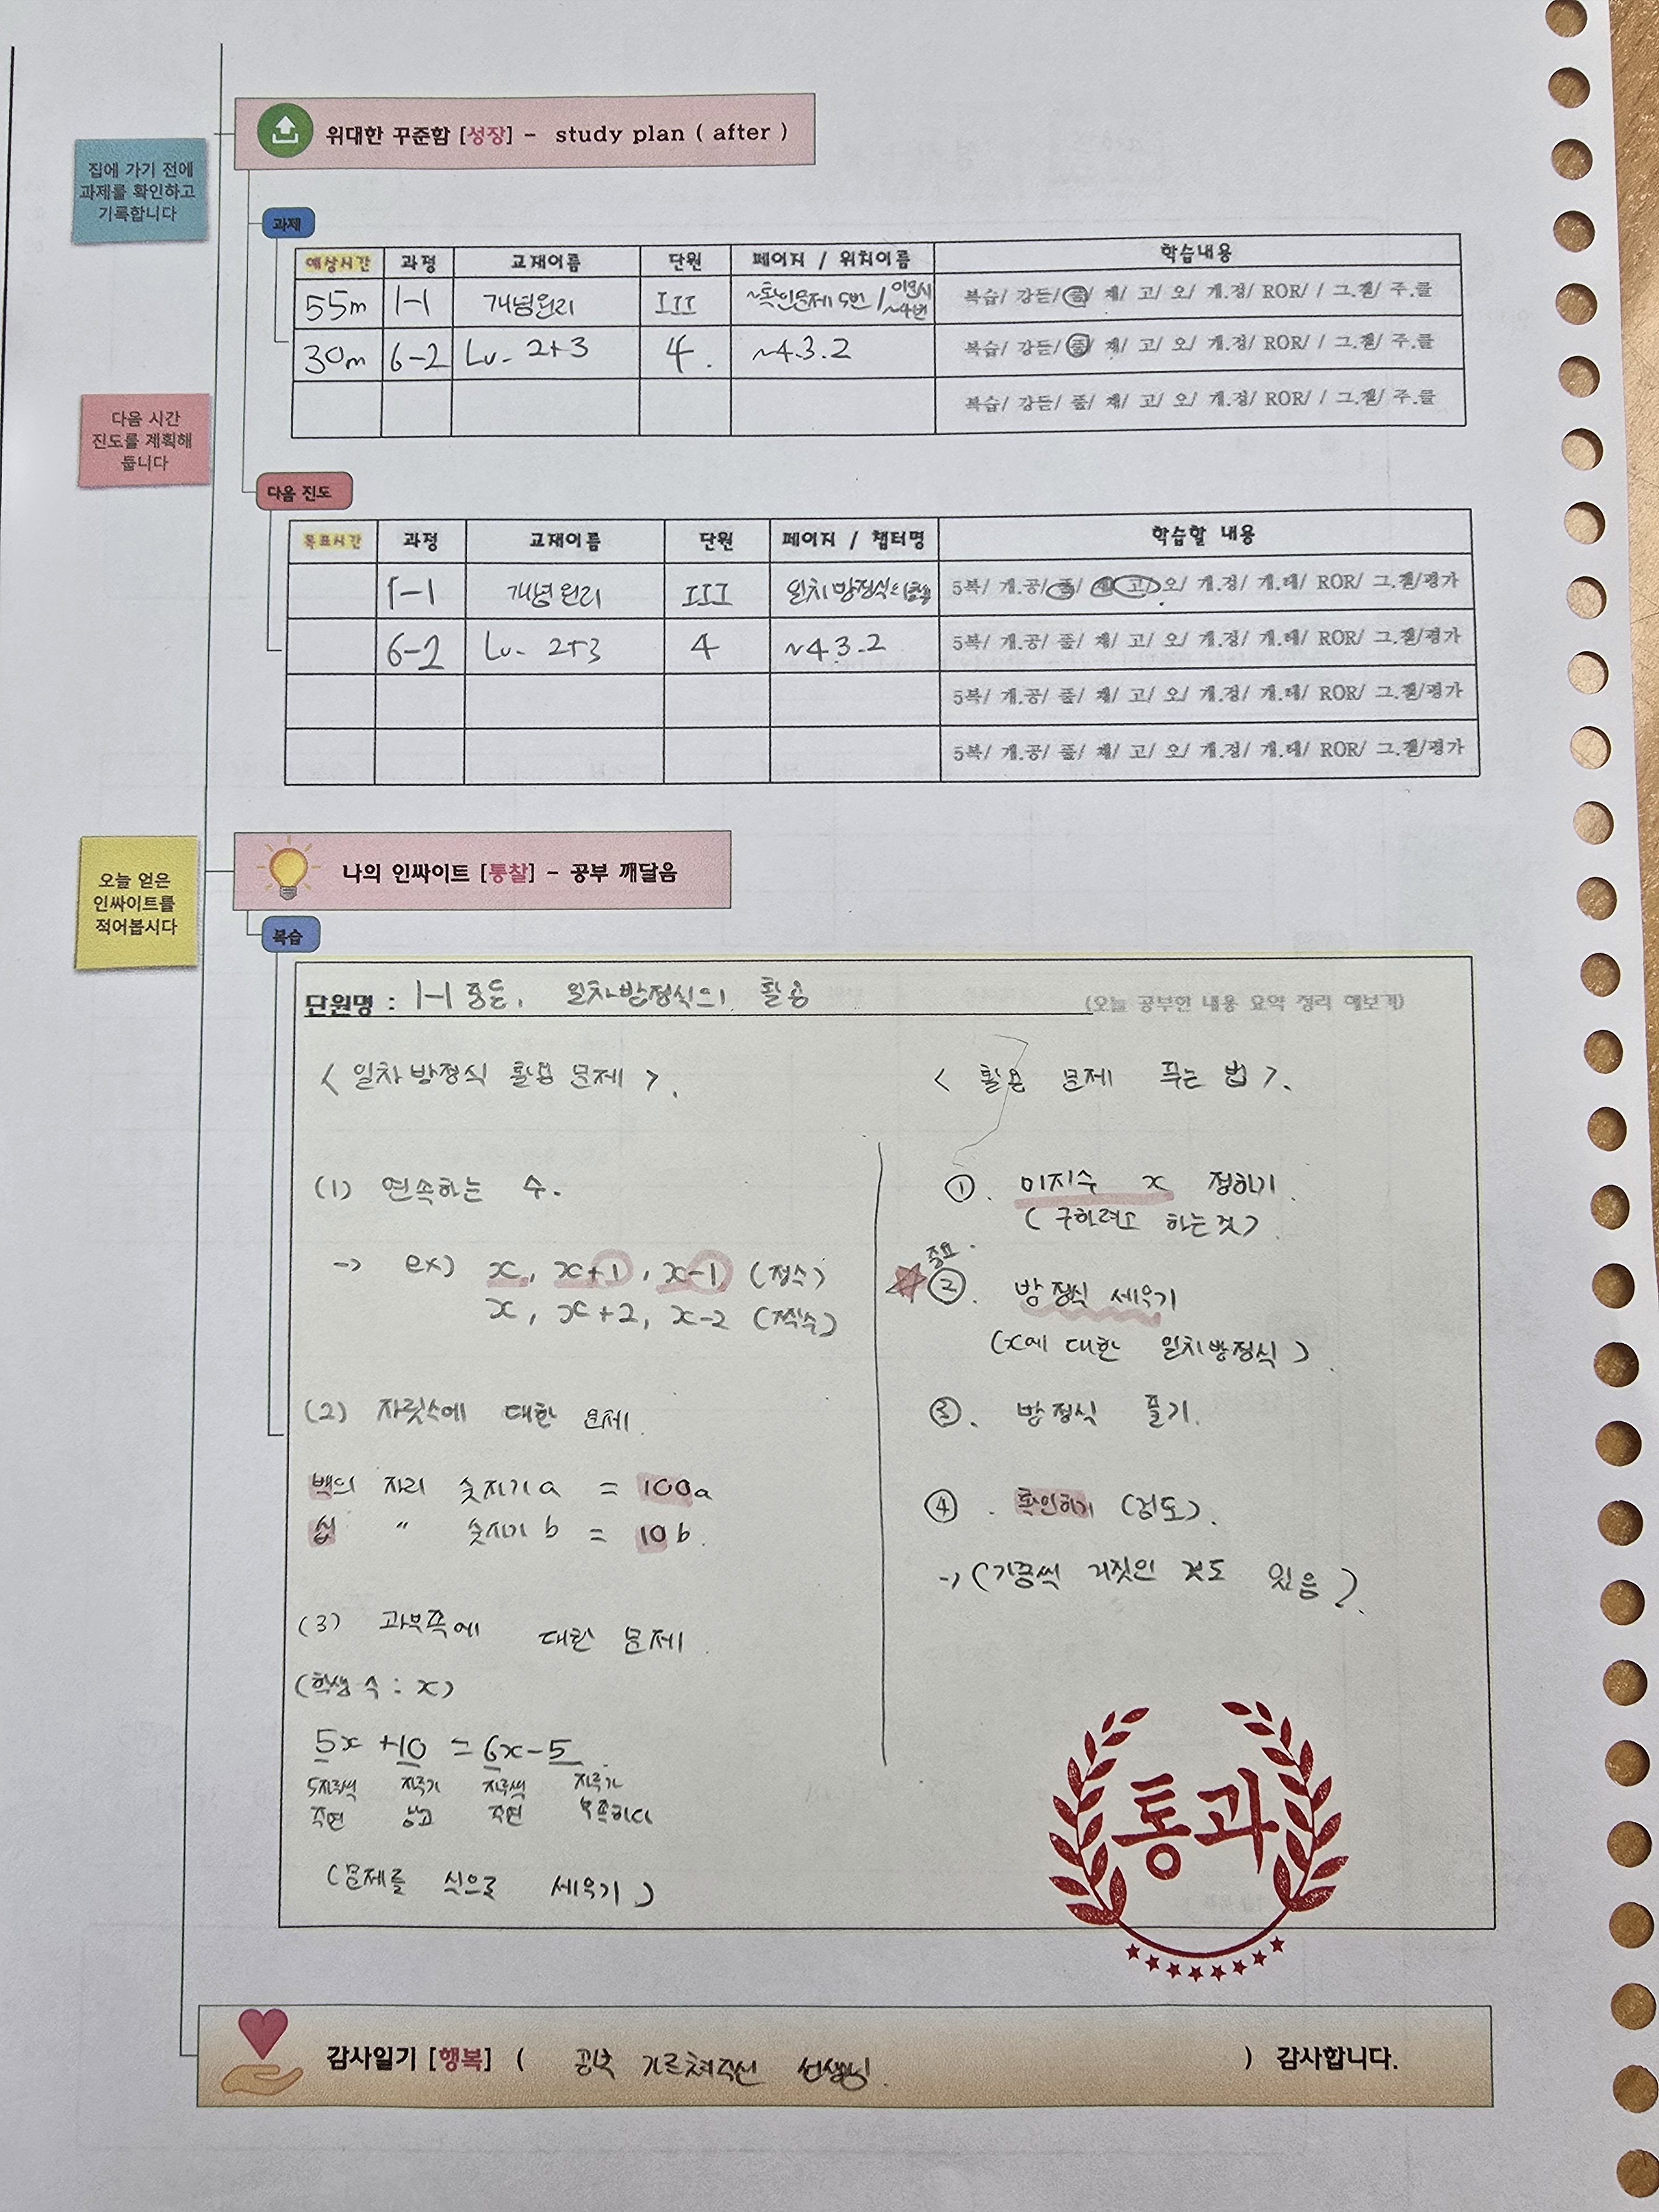 위대한 꾸준함 [성장] - study plan ( after )
집에 가기 전에
과제를 확인하고
기록합니다
과제
예상시간 과정 교재이름 단원 페이지 / 위치이름 학습내용
55m 1-1 개념원리 III ~확인문제 5번 / ~4번 복습/ 강든/ 풀/ 채/ 고/ 오/ 개.정/ ROR/ / 그.젤/ 주.클
30m 6-2 Lv. 2+3 4. ~4.3.2 복습/ 강든/ 풀/ 채/ 고/ 오/ 개.정/ ROR/ / 그.젤/ 주.클
복습/ 강든/ 풀/ 채/ 고/ 오/ 개.정/ ROR/ / 그.젤/ 주.클
다음 시간
진도를 계획해
둡니다
다음 진도
목표시간 과정 교재이름 단원 페이지 / 챕터명 학습할 내용
1-1 개념원리 III 일차방정식의 활용 5복/ 개.공/ 풀/ 채/ 고/ 오/ 개.정/ 개.테/ ROR/ 그.젤/평가
6-2 Lv. 2+3 4 ~4.3.2 5복/ 개.공/ 풀/ 채/ 고/ 오/ 개.정/ 개.테/ ROR/ 그.젤/평가
5복/ 개.공/ 풀/ 채/ 고/ 오/ 개.정/ 개.테/ ROR/ 그.젤/평가
5복/ 개.공/ 풀/ 채/ 고/ 오/ 개.정/ 개.테/ ROR/ 그.젤/평가
오늘 얻은
인싸이트를
적어봅시다
나의 인싸이트 [통찰] - 공부 깨달음
복습
단원명 : 1-1 중등, 일차방정식의 활용 (오늘 공부한 내용 요약 정리 해보기)
< 일차방정식 활용 문제 >.
(1) 연속하는 수.
-> ex) x, x+1, x-1 (정수)
x, x+2, x-2 (짝수)
(2) 자릿수에 대한 문제.
백의 자리 숫자가 a = 100a
십 " 숫자가 b = 10b.
(3) 과부족에 대한 문제.
(학생 수 : x)
5x +10 = 6x-5
5자루씩 자루가 자루씩 자루가
주면 남고 주면 부족하다
(문제를 식으로 세우기)
< 활용 문제 푸는 법 >.
①. 미지수 x 정하기.
(구하려고 하는 것)
중요.
②. 방정식 세우기
(x에 대한 일차방정식).
③. 방정식 풀기.
④. 확인하기 (검토).
-> (가끔씩 거짓인 것도 있음).
통과
감사일기 [행복] ( 공부 가르쳐주신 선생님. ) 감사합니다.